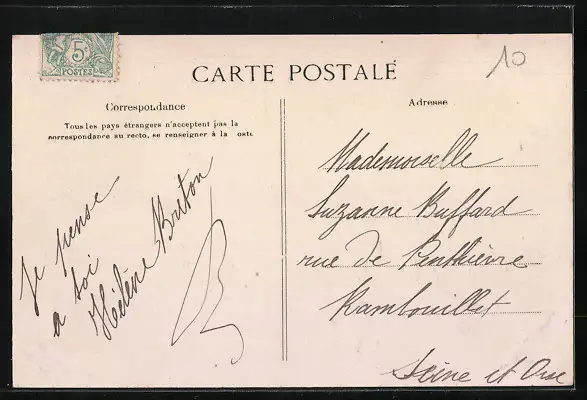 5c
POSTES
10
CARTE POSTALE
Correspondance
Tous les pays étrangers n'acceptent pas la
correspondance au recto, se renseigner à la oste
Je pense
a toi
Hélène Breton
Adresse
Mademoiselle
Suzanne Buffard
rue de Penthièvre
Rambouillet
Seine et Oise